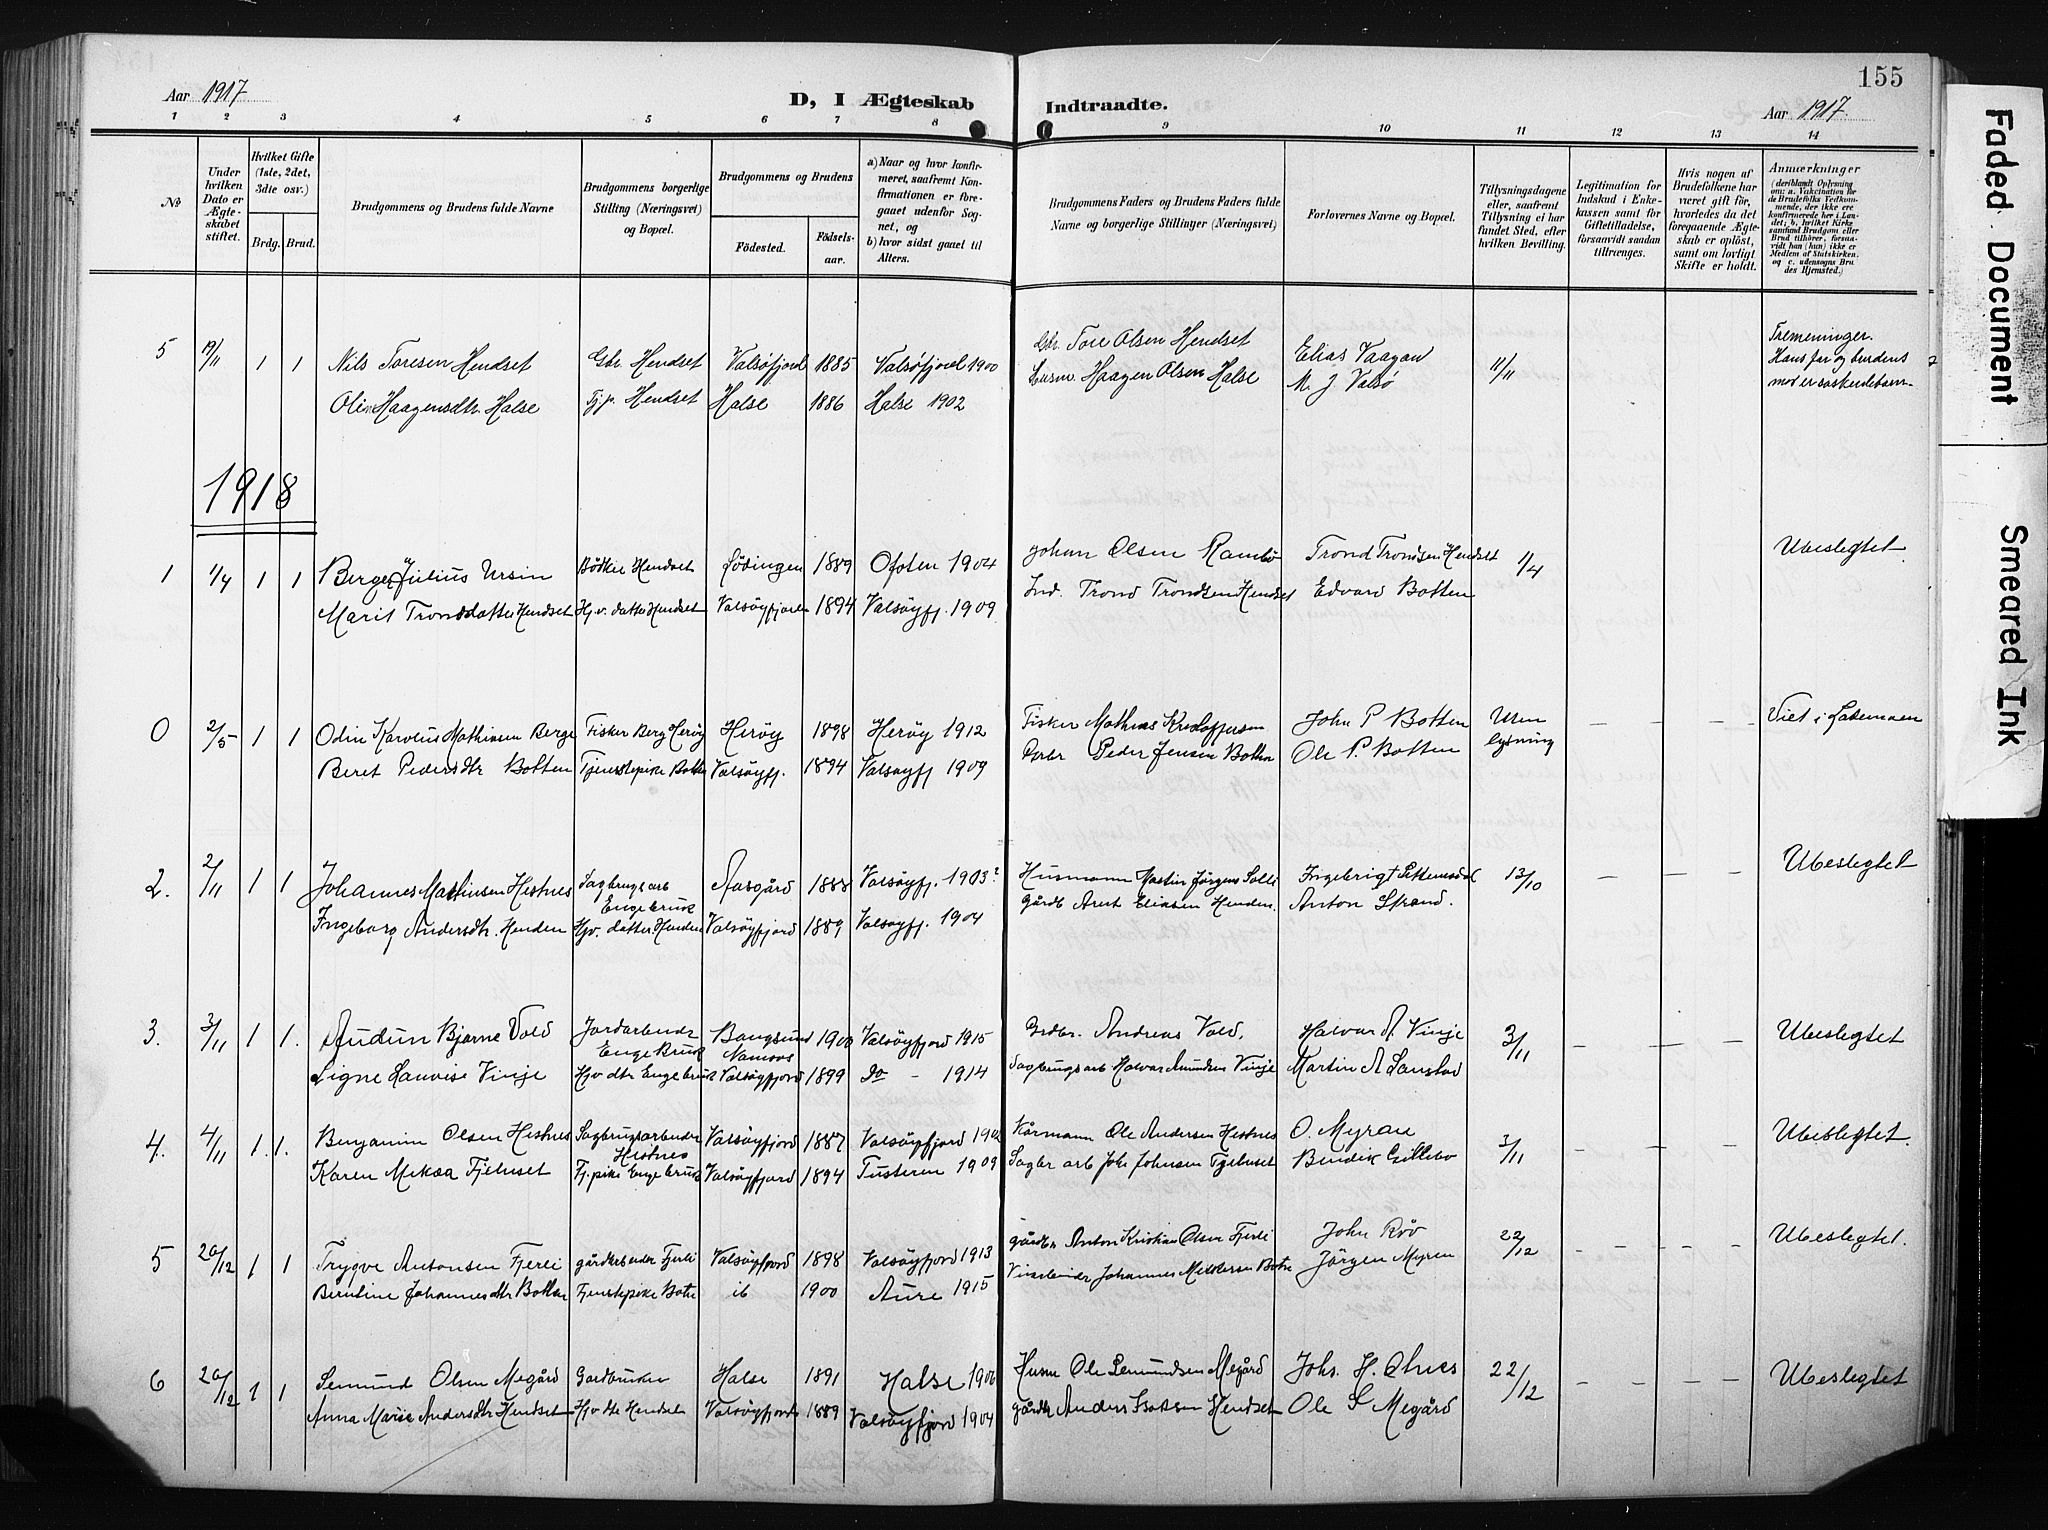 155
Aar 1917
D, I Ægteskab Indtraadte.
Aar 1917
1 2 3 4 5 6 7 8 9 10 11 12 13 14
No
Under hvilken Dato er Ægteskabet stiftet.
Hvilket Gifte (1ste, 2det, 3die osv.)
Brdg. Brud.
Brudgommens og Brudens fulde Navne
Brudgommens borgerlige Stilling (Næringsvei) og Bopæl.
Brudgommens og Brudens
Fødested. Fødselsaar.
a) Naar og hvor konfirmeret, saafremt Konfirmationen er foregaaet udenfor Sognet, og
b) hvor sidst gaaet til Alters.
Brudgommens Faders og Brudens Faders fulde Navne og borgerlige Stillinger (Næringsvei)
Forlovernes Navne og Bopæl.
Tillysningsdagene eller, saafremt Tillysning ei har fundet Sted, efter hvilken Bevilling.
Legitimation for Indskud i Enkekassen samt for Giftetilladelse, forsaavidt saadan tiltrænges.
Hvis nogen af Brudefolkene har været gift før, hvorledes da det foregaaende Ægteskab er opløst, samt om lovligt Skifte er holdt.
Anmærkninger
(deriblandt Oplysning om: a. Vakcination for de Brudefolks Vedkommende, der ikke ere konfirmerede her i Landet; b. hvilket Kirkesamfund Brudgom eller Brud tilhører, forsaavidt han (hun) ikke er Medlem af Statskirken, og c. udensogns Brudes Hjemsted.)
5 19/11 1 1 Nils Toresen Hendset Gbr. Hendset Valsøfjord 1885 Valsøfjord 1900 Gbr. Tore Olsen Hendset Elias Vaagan 11/11 Tremeninger.
Hans far og brudens
Oline Haagensdtr. Halse Tj.p. Hendset Halse 1886 Halse 1902 Husm. Haagen Olsen Halse M. J. Valsø mor er søskendebarn
1918
1 1/4 1 1 Berger Julius Ursin Bødker Hendset Lødingen 1889 Ofoten 1904 Johan Olsen Trond Trondsen Hendset 1/4 Ubeslegtet
Marit Trondsdatter Hendset Hj.v. datter Hendset Valsøyfjorden 1894 Valsøyfj. 1909 Ind. Trond Trondsen Hendset Edvard Botten
0 2/5 1 1 Odin Karolius Mathiasen Berge Fisker Berg Herøy Herøy 1898 Herøy 1912 Fisker Mathias Kristoffersen John P Botten Uten lysning — — — Viet i
Beret Pedersdtr Botten Tjenestepike Botten Valsøyfj. 1894 Valsøyfj 1909 Peder Jensen Botten Ole P. Botten
2. 2/11 1 1 Johannes Martinsen Hestnes Sagbrugsarb Engebruk Aasgård 1888 Valsøyfj. 1903? Husmann Martin Jørgens Solli Ingebrigt Settemsdal 13/10 — — — Ubeslegtet
Ingeborg Andersdtr. Henden Hjv. datter Henden Valsøyfjord 1889 Valsøyfj. 1904 gårdb Arnt Eliasen Henden. Anton Strand.
3. 3/11 1 1. Audun Bjarne Vold Jordarbeider Enge Bruk Bangsund Namsos 1900 Valsøyfjord 1915 Grdbr. Andreas Vold. Halvar A. Vinje 3/11 — — — Ubeslegtet
Signe Lauvise Vinje Hjv dtr Engebruk Valsøyfjord 1899 Do - 1914 Sagbrugsarb Halvar Amundsen Vinje Martin A
4. 4/11 1. 1. Benjamin Olsen Hestnes Sagbrugsarbeider Hestnes Valsøyfjord 1887 Valsøyfjord 1902 Kårmann Ole Andersen Hestnes O. Myran 3/11 — — — Ubeslegtet.
Karen Mekaa Fjelset Tj.pike Engebruk Valsøyfjord 1894 Tusteren 1909 Sagbr arb Johs Johnsen Bendik Gillebo
5 26/12 1 1 Trygve Antonsen Fjerli gårdarbeider Fjerli Valsøyfjord 1898 Valsøyfjord 1913 gårdbr Anton Kristian Olsen Fjerli John Røv 22/12 — — — Ubeslegtet.
Berntine Johannesdtr Botten Tjenestepike Botne ib 1900 Aure 1915 Johannes Botne Jørgen Myren
6 26/12 1 1 Semund Olsen Megård Gardbruker Halse 1891 Halse 1906 Husm Ole Semundsen Megård Johs. H. Olnes 22/12 — — — Ubeslegtet
Anna Marie Andersdtr Hendset Hjv dtr Hendset Valsøyfjord 1889 Valsøyfjord 1904 gårdbr Anders Hendset Ole S Megård
Faded Document
Smeared Ink